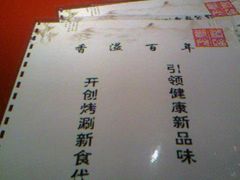 香溢百年
引领健康新品味
开创烤涮新食代